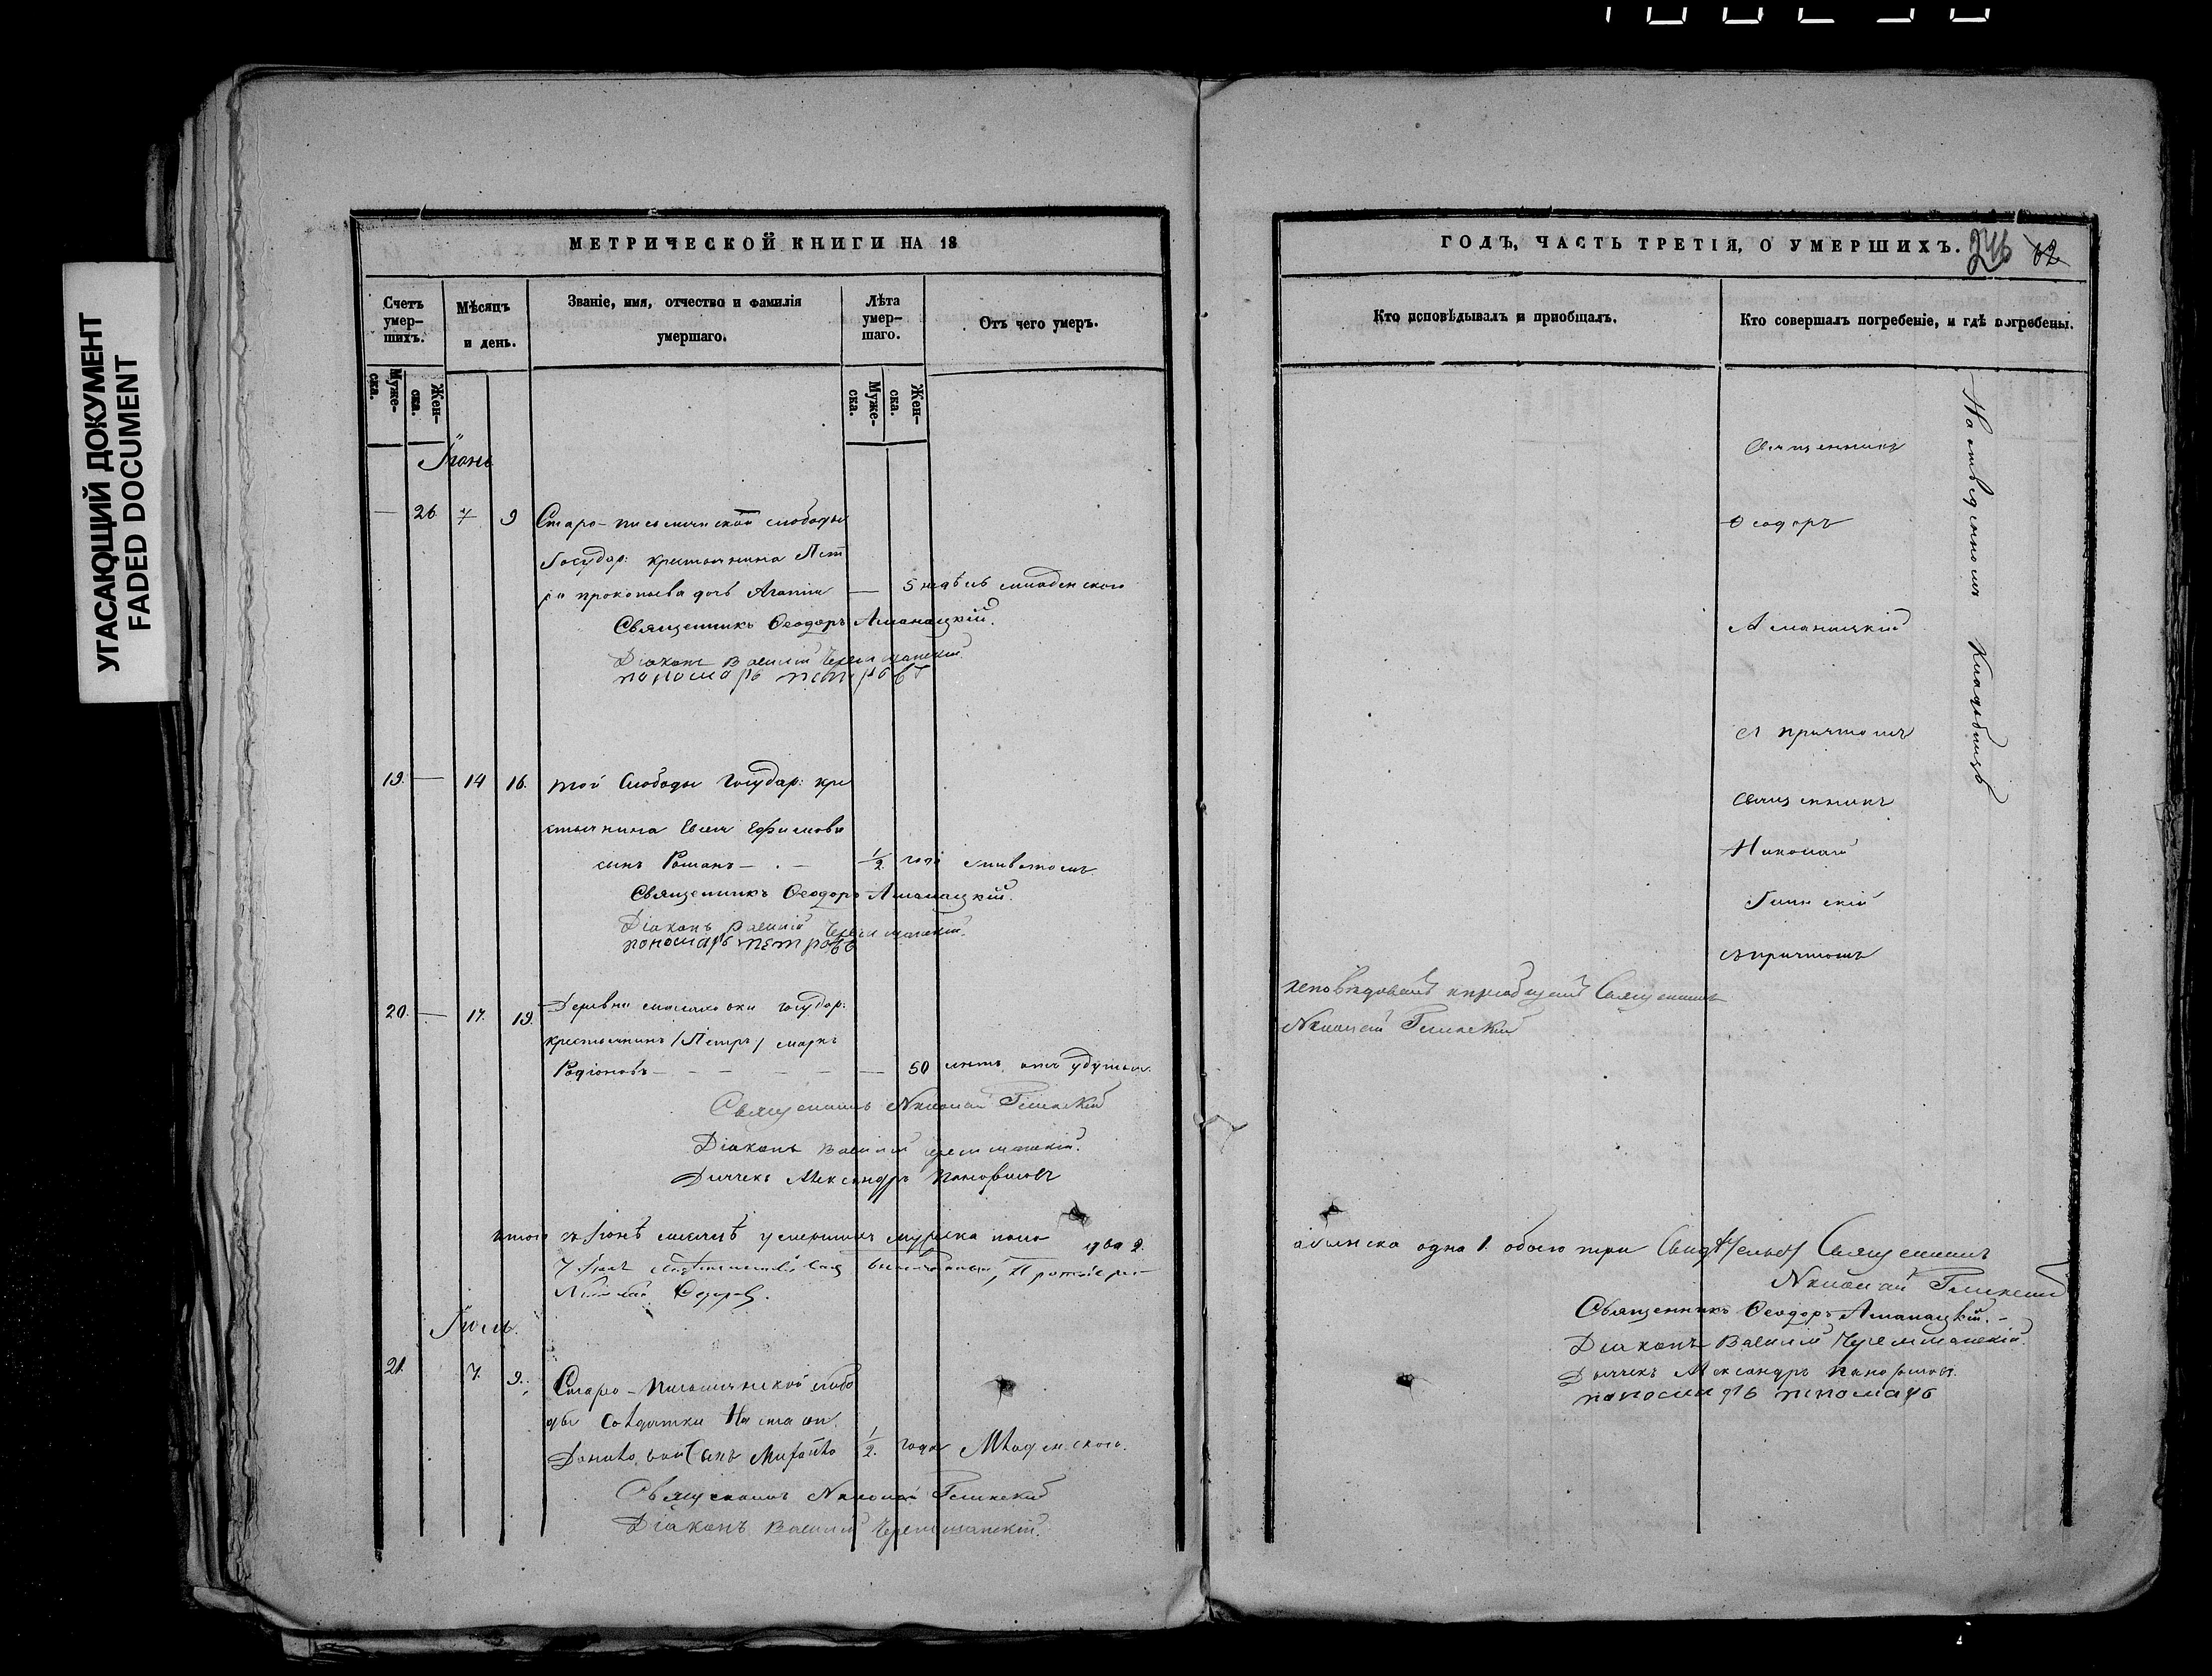 УГАСАЮЩИЙ ДОКУМЕНТ
FADED DOCUMENT
МЕТРИЧЕСКОЙ КНИГИ НА 18
Счетъ умер-шихъ.
Мѣсяцъ и день.
Званіе, имя, отчество и фамилія умершаго.
Лѣта умер-шаго.
Отъ чего умеръ.
Муже-ска.
Жен-ска.
Муже-ска.
Жен-ска.
Іюнь
— 26 7 9 Старо-письмянской слободы
Государ: крестьянина Пет
ра прокопьева дочь Агапія — 5 недѣль младенского
Священникъ Ѳеодоръ Аманацкій.
Діаконъ Василій Черемшанскій.
пономарь петровъ
19. — 14 16. той Слободы Государ: кре
стьянина Ефимова
сынъ Романъ — 1/2 года животомъ
Священникъ Ѳеодоръ Аманацкій.
Діаконъ Василій Черемшанскій.
пономарь петровъ
20. — 17. 19. Деревни государ:
крестьянинъ /Петръ/ маркъ
Родіоновъ — 50 лѣтъ отъ удушья
Священникъ Николай Глинскій
Діаконъ Василій Черемшанскій.
Дьячекъ Александръ Панормовъ
итого въ Іюнѣ месяцѣ умершихъ мужска пола два 2.
Протоіерей
Іюль.
21. 7. 9. Старо-Письмянской слобо
ды Солдатки Настасьи
Сынъ Михайло 1/2 года Младенского.
Священникъ Николай Глинскій
Діаконъ Василій Черемшанскій.
ГОДЪ, ЧАСТЬ ТРЕТІЯ, О УМЕРШИХЪ.
246 62
Кто исповѣдывалъ и пріобщалъ.
Кто совершалъ погребеніе, и гдѣ погребены.
Священникъ
Ѳеодоръ
Аманацкій
съ причтомъ
Священникъ
Николай
Глинскій
съ причтомъ
На отведенномъ Кладбищѣ
исповѣдовалъ и приобщалъ Священникъ
Николай Глинскій
а женска одна 1. обоего три Священникъ
Николай Глинскій
Священникъ Ѳеодоръ Аманацкій.
Діаконъ Василій Черемшанскій.
Дьячекъ Александръ Панормовъ.